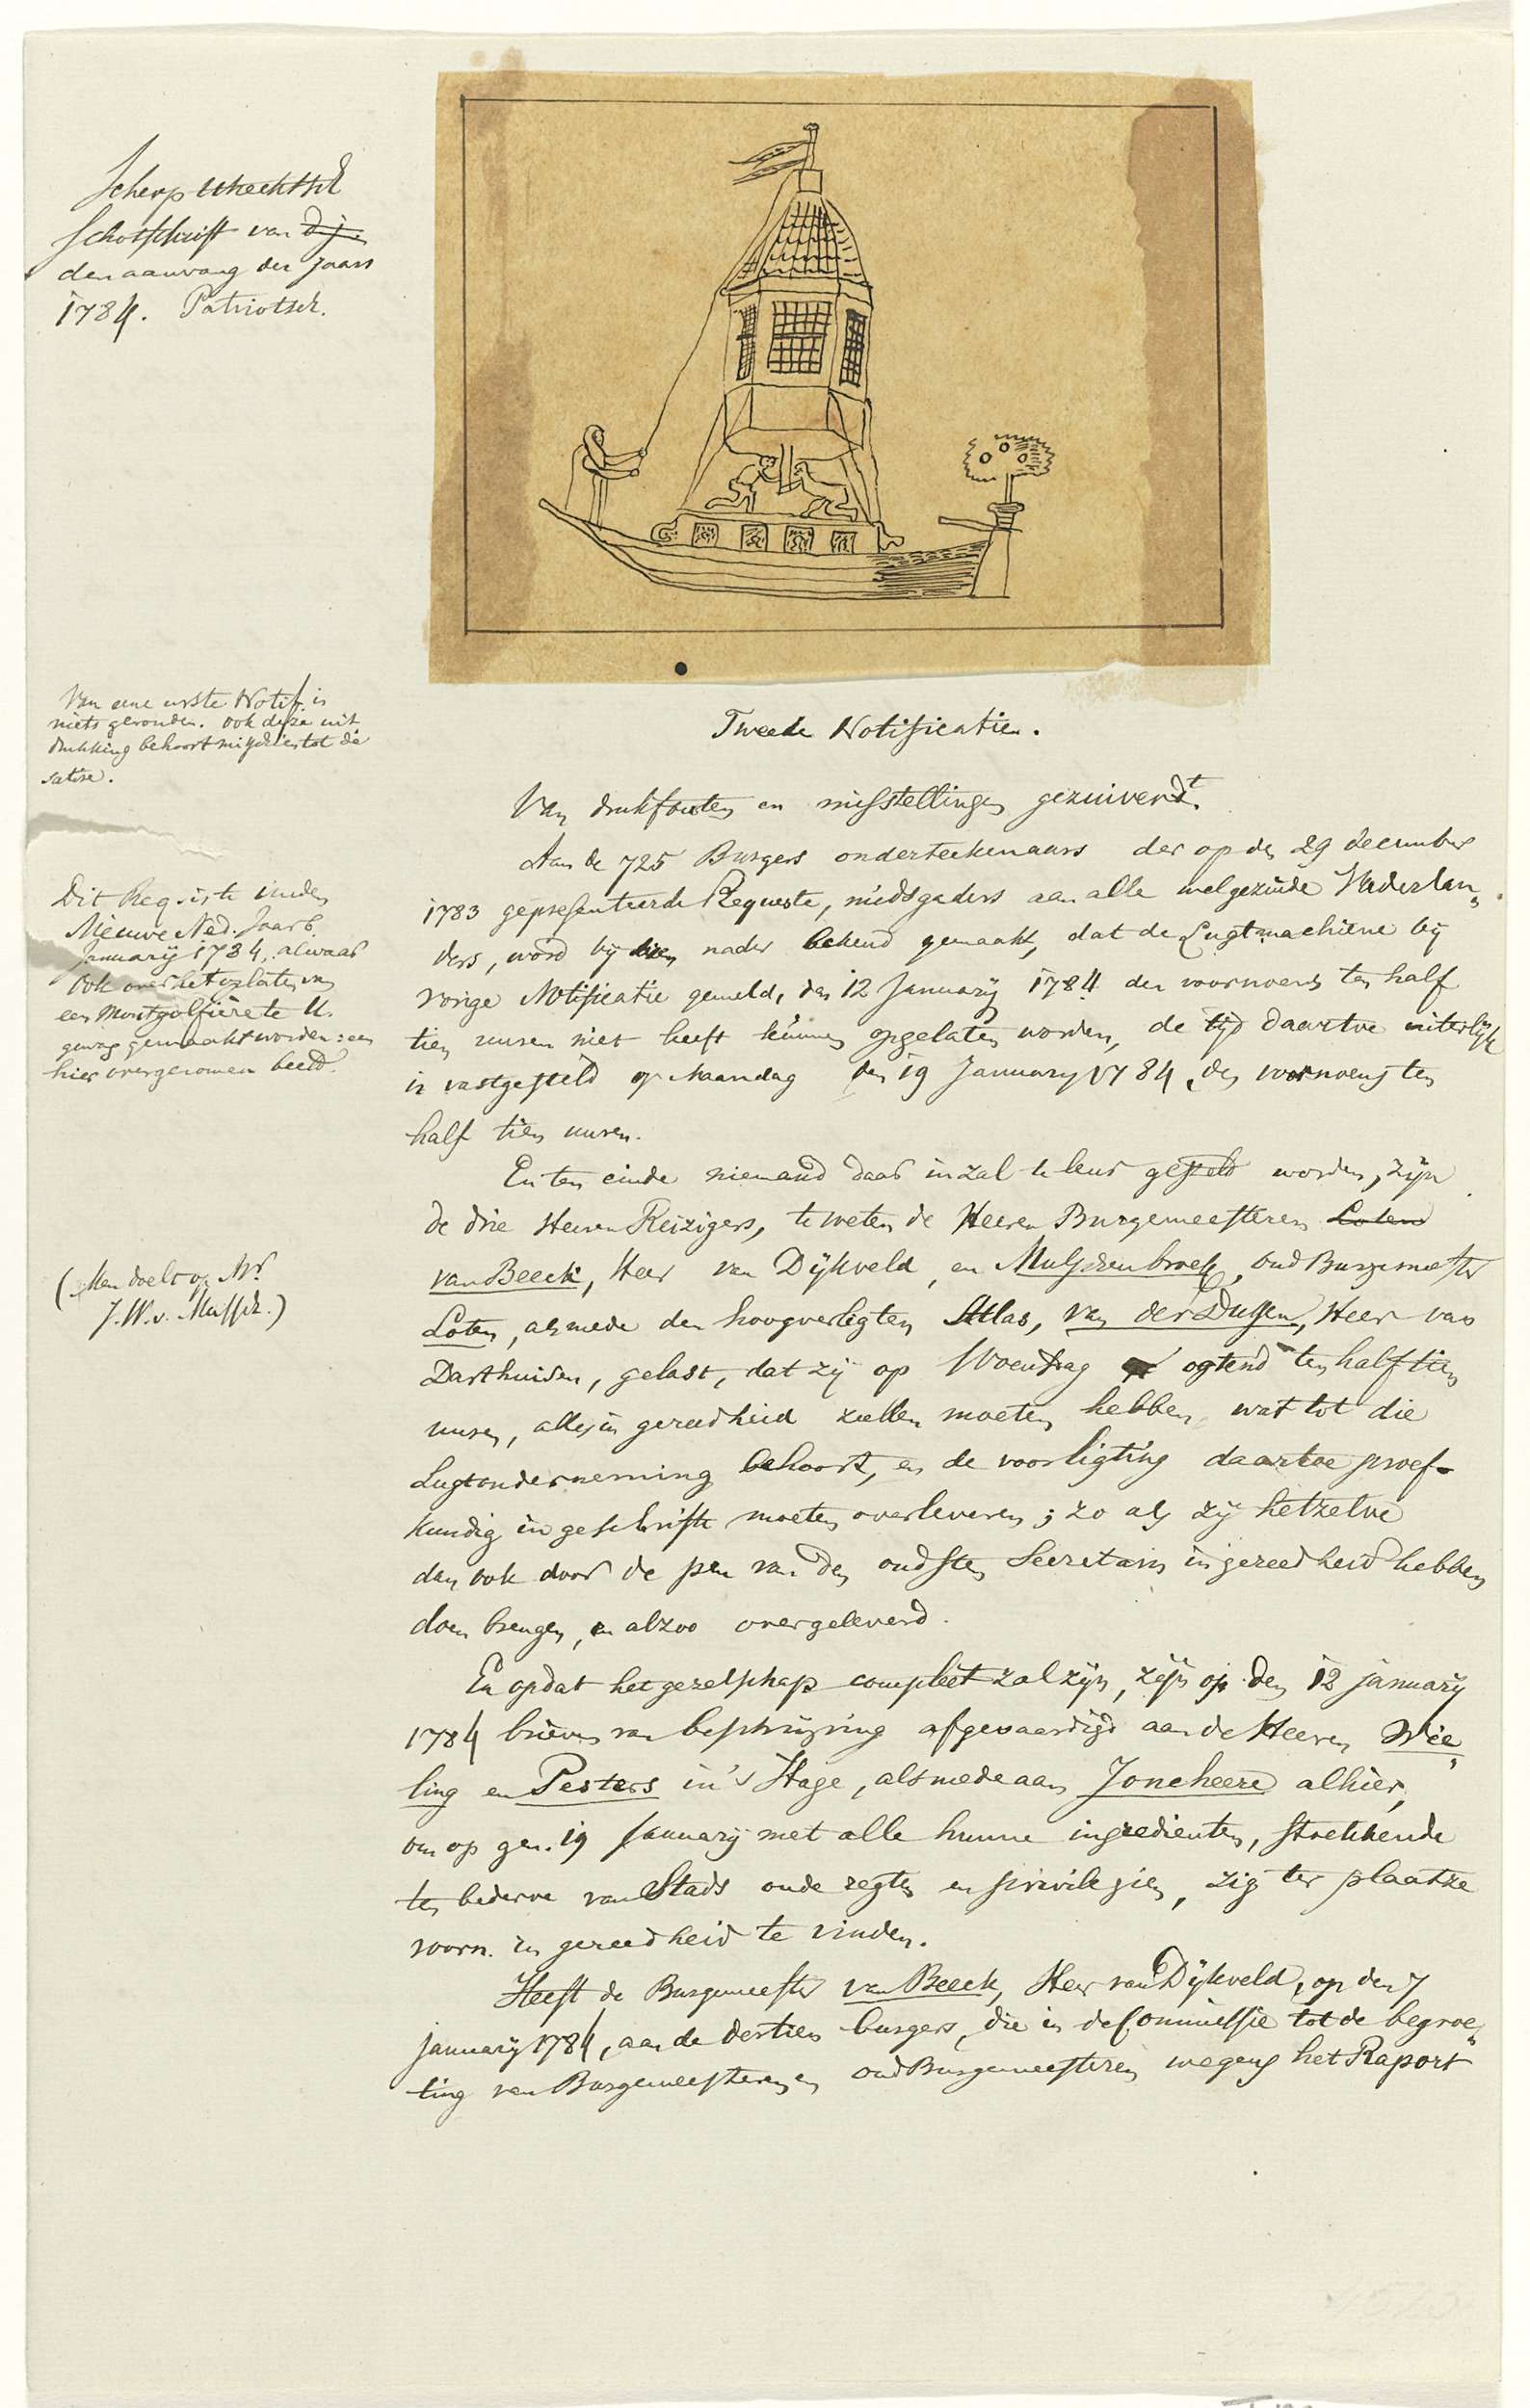 Scherp Utrechtsch
Schotschrift van
den aanvang des jaars
1784. Patriotsch.
Van eene eerste Notif. is
niets gevonden. ook deze uit
drukking behoort mitsdien tot de
satire.
Dit Req. is te vinden
Nieuwe Ned. Jaarb.
January 1784, alwaar
ook over het oplaten van
een Montgolfière te U.
gewag gemaakt worden: een
hier overgenomen beeld.
(Men doelt op Mr.
J. W. v. Mussch.)
Tweede Notificatie.
Van drukfouten en misstellingen gezuiverdt.
Aan de 725 Burgers onderteekenaars der op den 29 december
1783 gepresenteerde Requeste, midsgaders aan alle welgezinde Nederlan„
ders, word bij dezen nader bekend gemaakt, dat de Lugtmachiene bij
vorige Notificatie gemeld, den 12 January 1784 des voornoens ten half
tien uuren niet heeft kunnen opgelaten worden, de tijd daartoe uiterlijk
is vastgesteld op Maandag den 19 January 1784, des voornoens ten
half tien uuren.
En ten einde niemand daar in zal te leur gesteld worden, zijn
de drie Heeren Reizigers, te weten de Heeren Burgemeesteren Loten
van Beeck, Heer van Dijkveld, en Mulschenbroek, oud Burgemeester
Loten, alsmede den hoogverligten Atlas, van der Dussen, Heer van
Darthuisen, gelast, dat zij op Woensdag ogtend ten half tien
uuren, alles in gereedheid zullen moeten hebben, wat tot die
Lugtonderneming behoort, en de voorligting daartoe proef-
kundig in geschrifte moeten overleveren; zo als zij hetzelve
dan ook door de pen van den oudsten Secretaris in gereedheid hebben
doen brengen, en alzoo overgeleverd.
En opdat het gezelschap compleet zal zijn, zijn op den 12 january
1784 brieven van beschrijving afgevaardigd aan de Heeren Wie„
ling en Pesters in 's Hage, alsmede aan Joncheere alhier,
om op gen. 19 January met alle hunne ingredienten, strekkende
ten bederve van Stads oude regten en privilegien, zig ter plaatze
voorn. in gereedheid te vinden.
Heeft de Burgemeester van Beeck, Heer van Dijkveld, op den 7
january 1784, aan de dertien burgers, die in de Commissie tot de begroe„
ting van Burgemeesteren en oud Burgemeesteren wegens het Raport